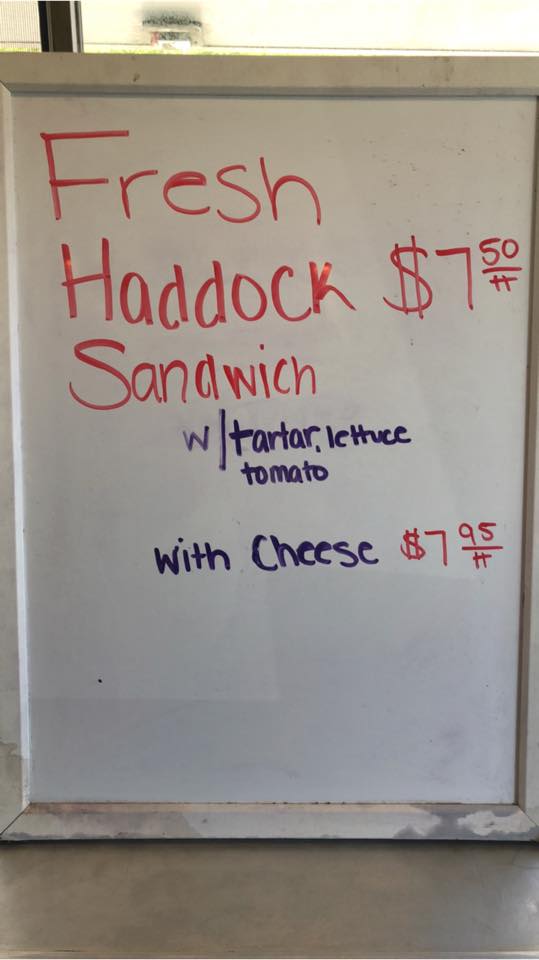 Fresh
Haddock $7 50/#
Sandwich
w/tartar, lettuce
tomato
with Cheese $7 95/#